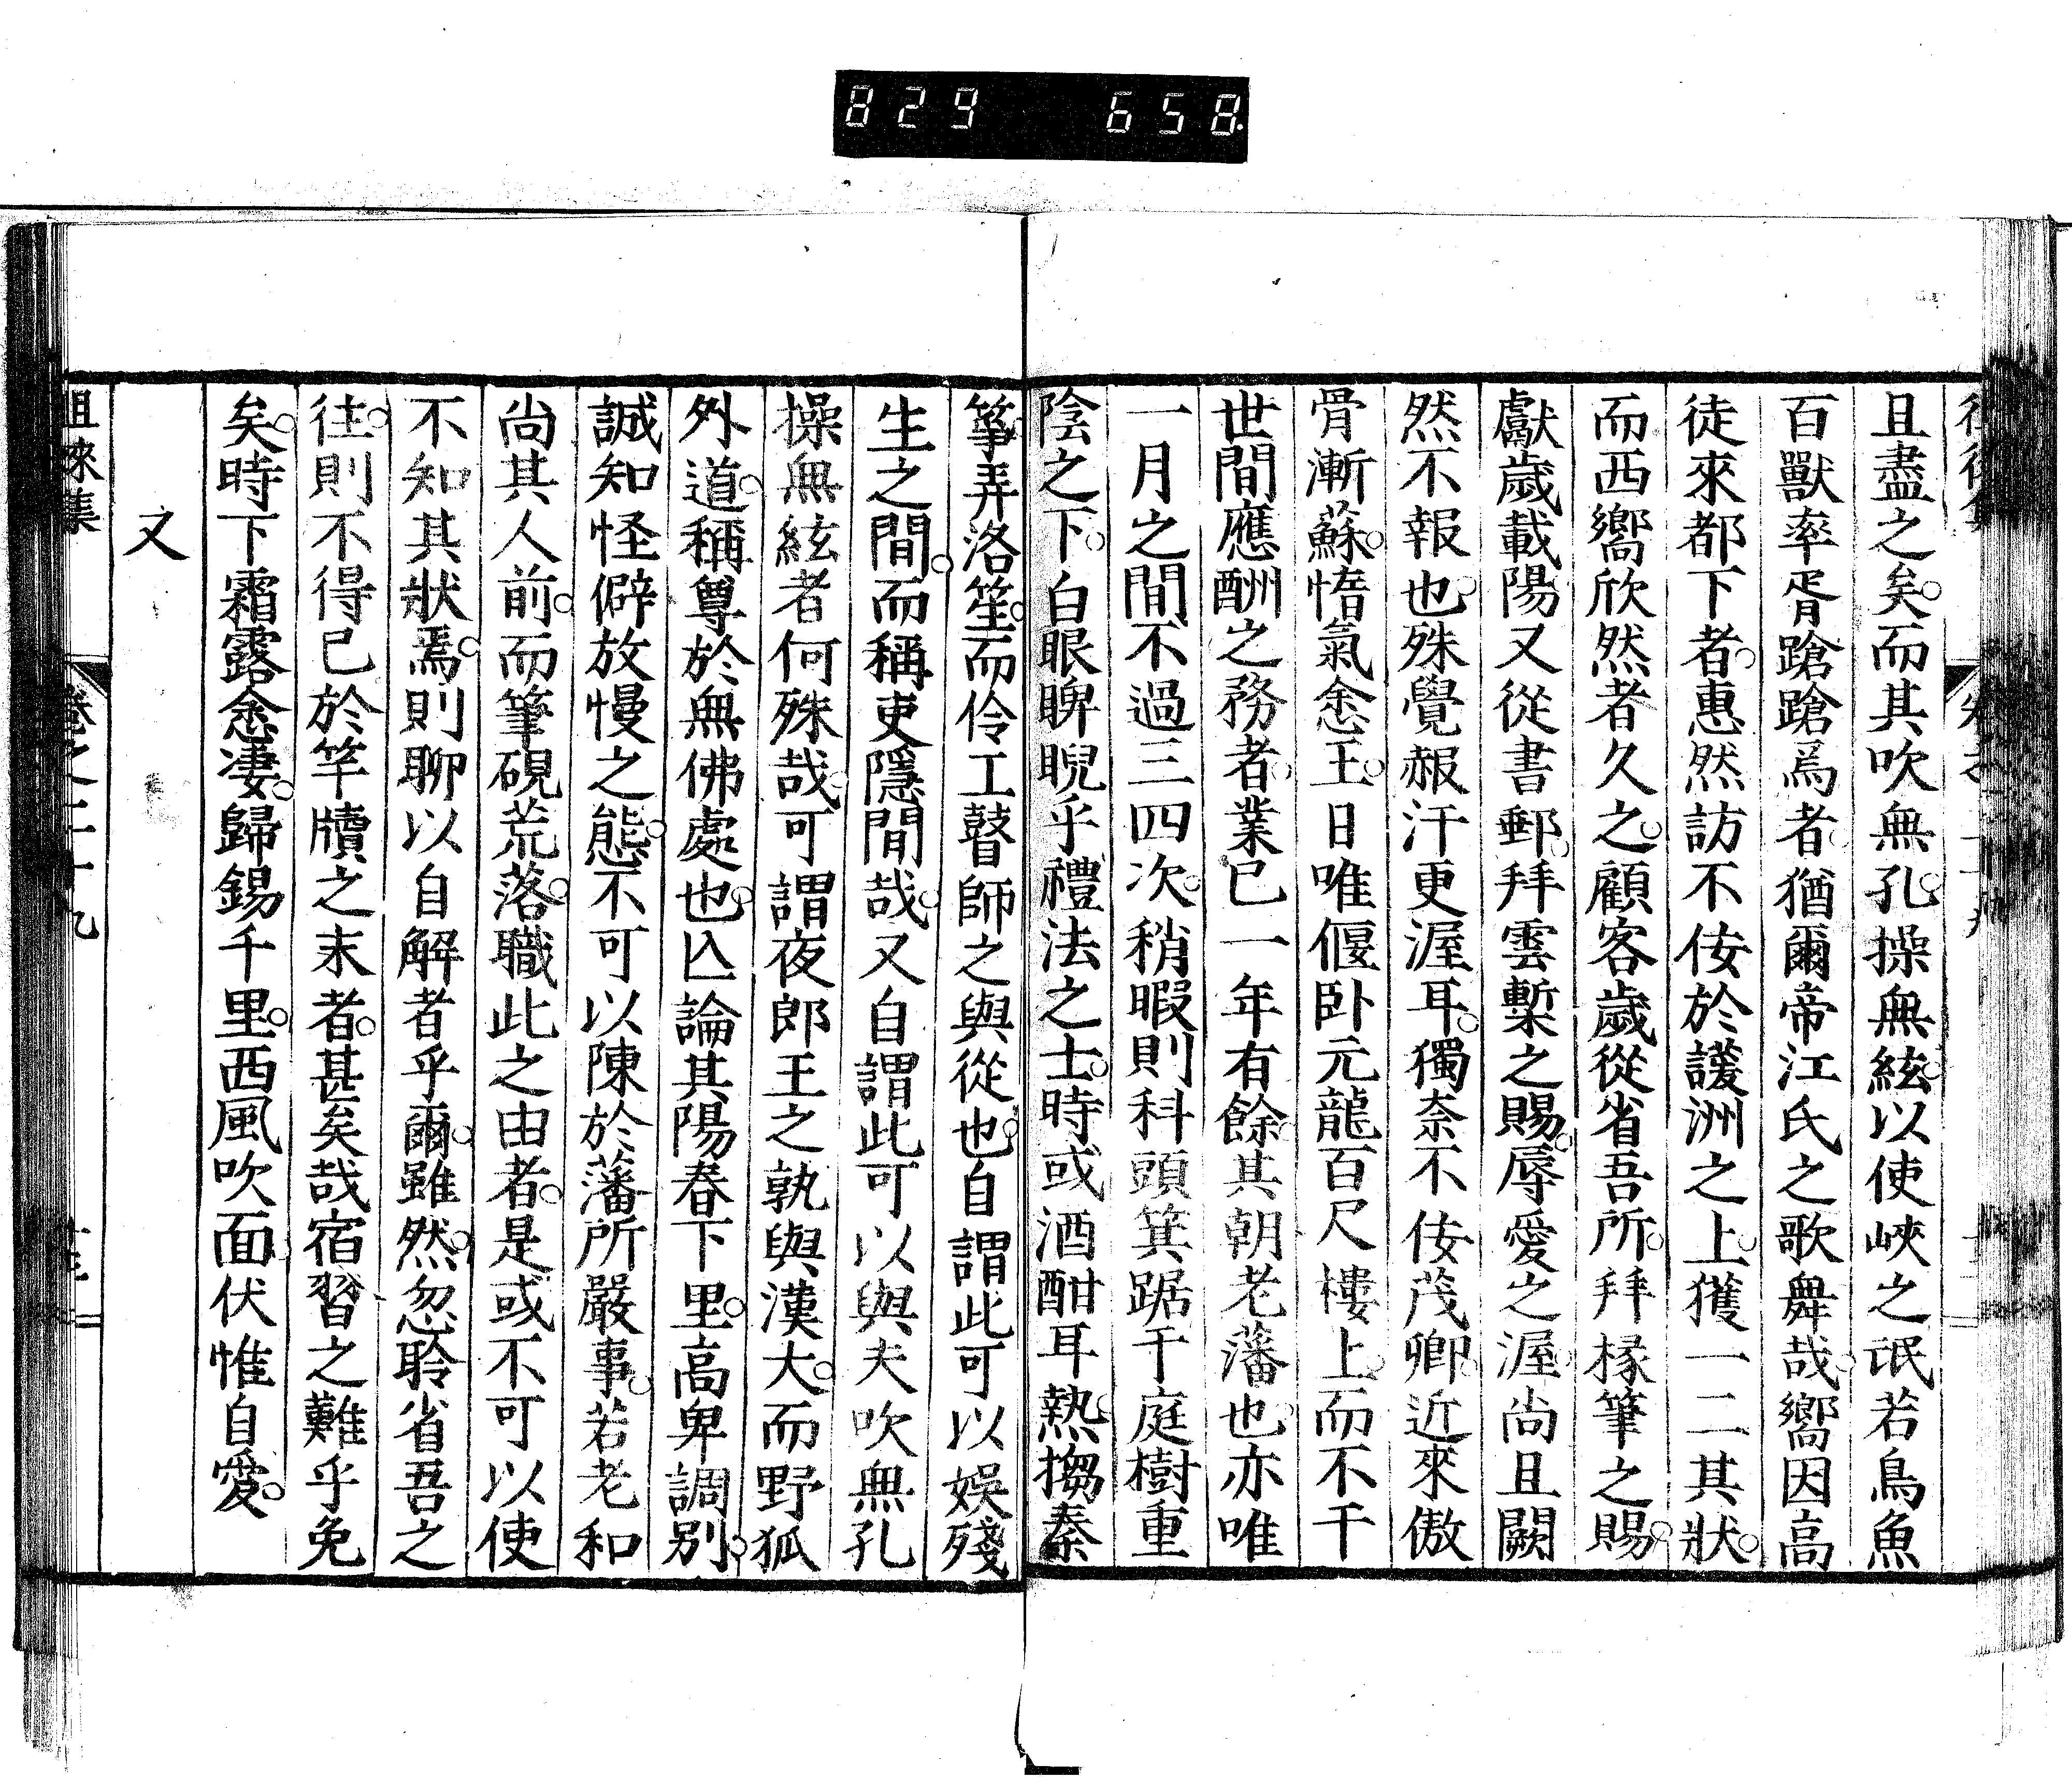 829 658
且盡之矣。而其吹無孔。操無絃。以使峽之氓若鳥魚
百獸率胥蹌蹌焉者。猶爾帝江氏之歌舞哉。嚮因高
徒來都下者。惠然訪不佞於護洲之上。獲一二其狀。
而西嚮欣然者久之。顧客歲從省吾所。拜椽筆之賜。
獻歲載陽又從書郵。拜雲槧之賜。辱愛之渥。尚且闕
然不報也。殊覺赧汗更渥耳。獨柰不佞茂卿。近來傲
骨漸蘇。惰氣悆王。日唯偃臥元龍百尺樓上。而不干
世間應酬之務者。業已一年有餘。其朝老藩也。亦唯
一月之間不過三四次。稍暇則科頭箕踞于庭樹重
陰之下。白眼睥睨乎禮法之士。時或酒酣耳熱。搊秦
箏。弄洛笙。而伶工瞽師之與從也。自謂此可以娛殘
生之間。而稱吏隱間哉。又自謂此可以與夫吹無孔
操無絃者何殊哉。可謂夜郎王之孰與漢大。而野狐
外道。稱尊於無佛處也。亾論其陽春下里。高卑調別。
誠知怪僻放慢之態。不可以陳於藩所嚴事。若老和
尚其人前。而筆硯荒落。職此之由者。是或不可以使
不知其狀焉。則聊以自解者乎爾。雖然。忽聆省吾之
往。則不得已於竿牘之末者。甚矣哉宿習之難乎免
矣。時下霜露悆凄。歸錫千里。西風吹面。伏惟自愛。
又
徂徠集 卷之二十九